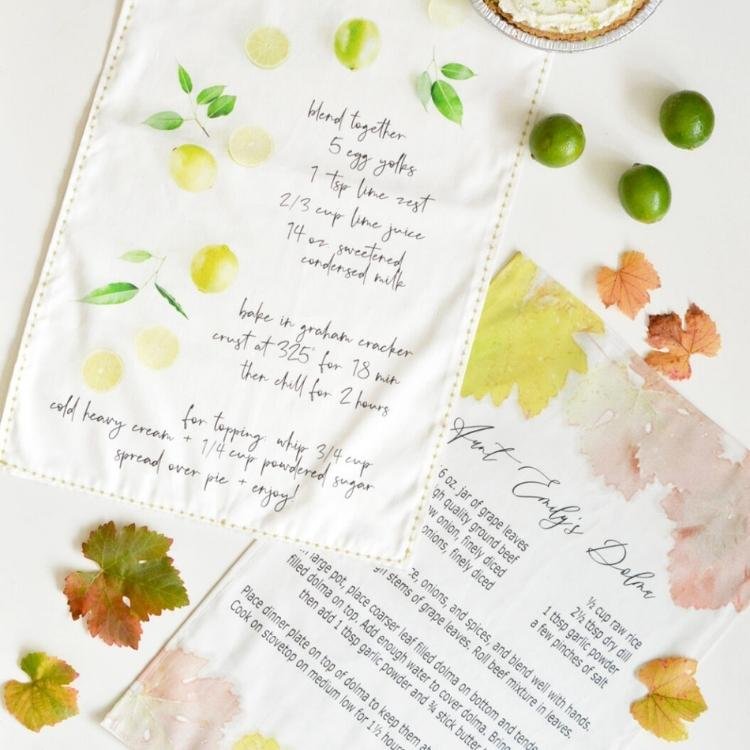 blend together
5 egg yolks
1 tsp lime zest
2/3 cup lime juice
14 oz sweetened
condensed milk
bake in graham cracker
crust at 325° for 18 min
then chill for 2 hours
for topping whip 3/4 cup
cold heavy cream + 1/4 cup powdered sugar
spread over pie + enjoy!
Aunt Emily's Dolma
6 oz. jar of grape leaves
quality ground beef
onion, finely diced
onions, finely diced
½ cup raw rice
2½ tbsp dry dill
1 tbsp garlic powder
a few pinches of salt
onions, and spices, and blend well with hands.
stems of grape leaves. Roll beef mixture in leaves.
large pot, place coarser leaf filled dolma on bottom and
filled dolma on top. Add enough water to cover dolma.
then add 1 tbsp garlic powder and ¾ stick butter
Place dinner plate on top of dolma to keep them
Cook on stovetop on medium low for 1½